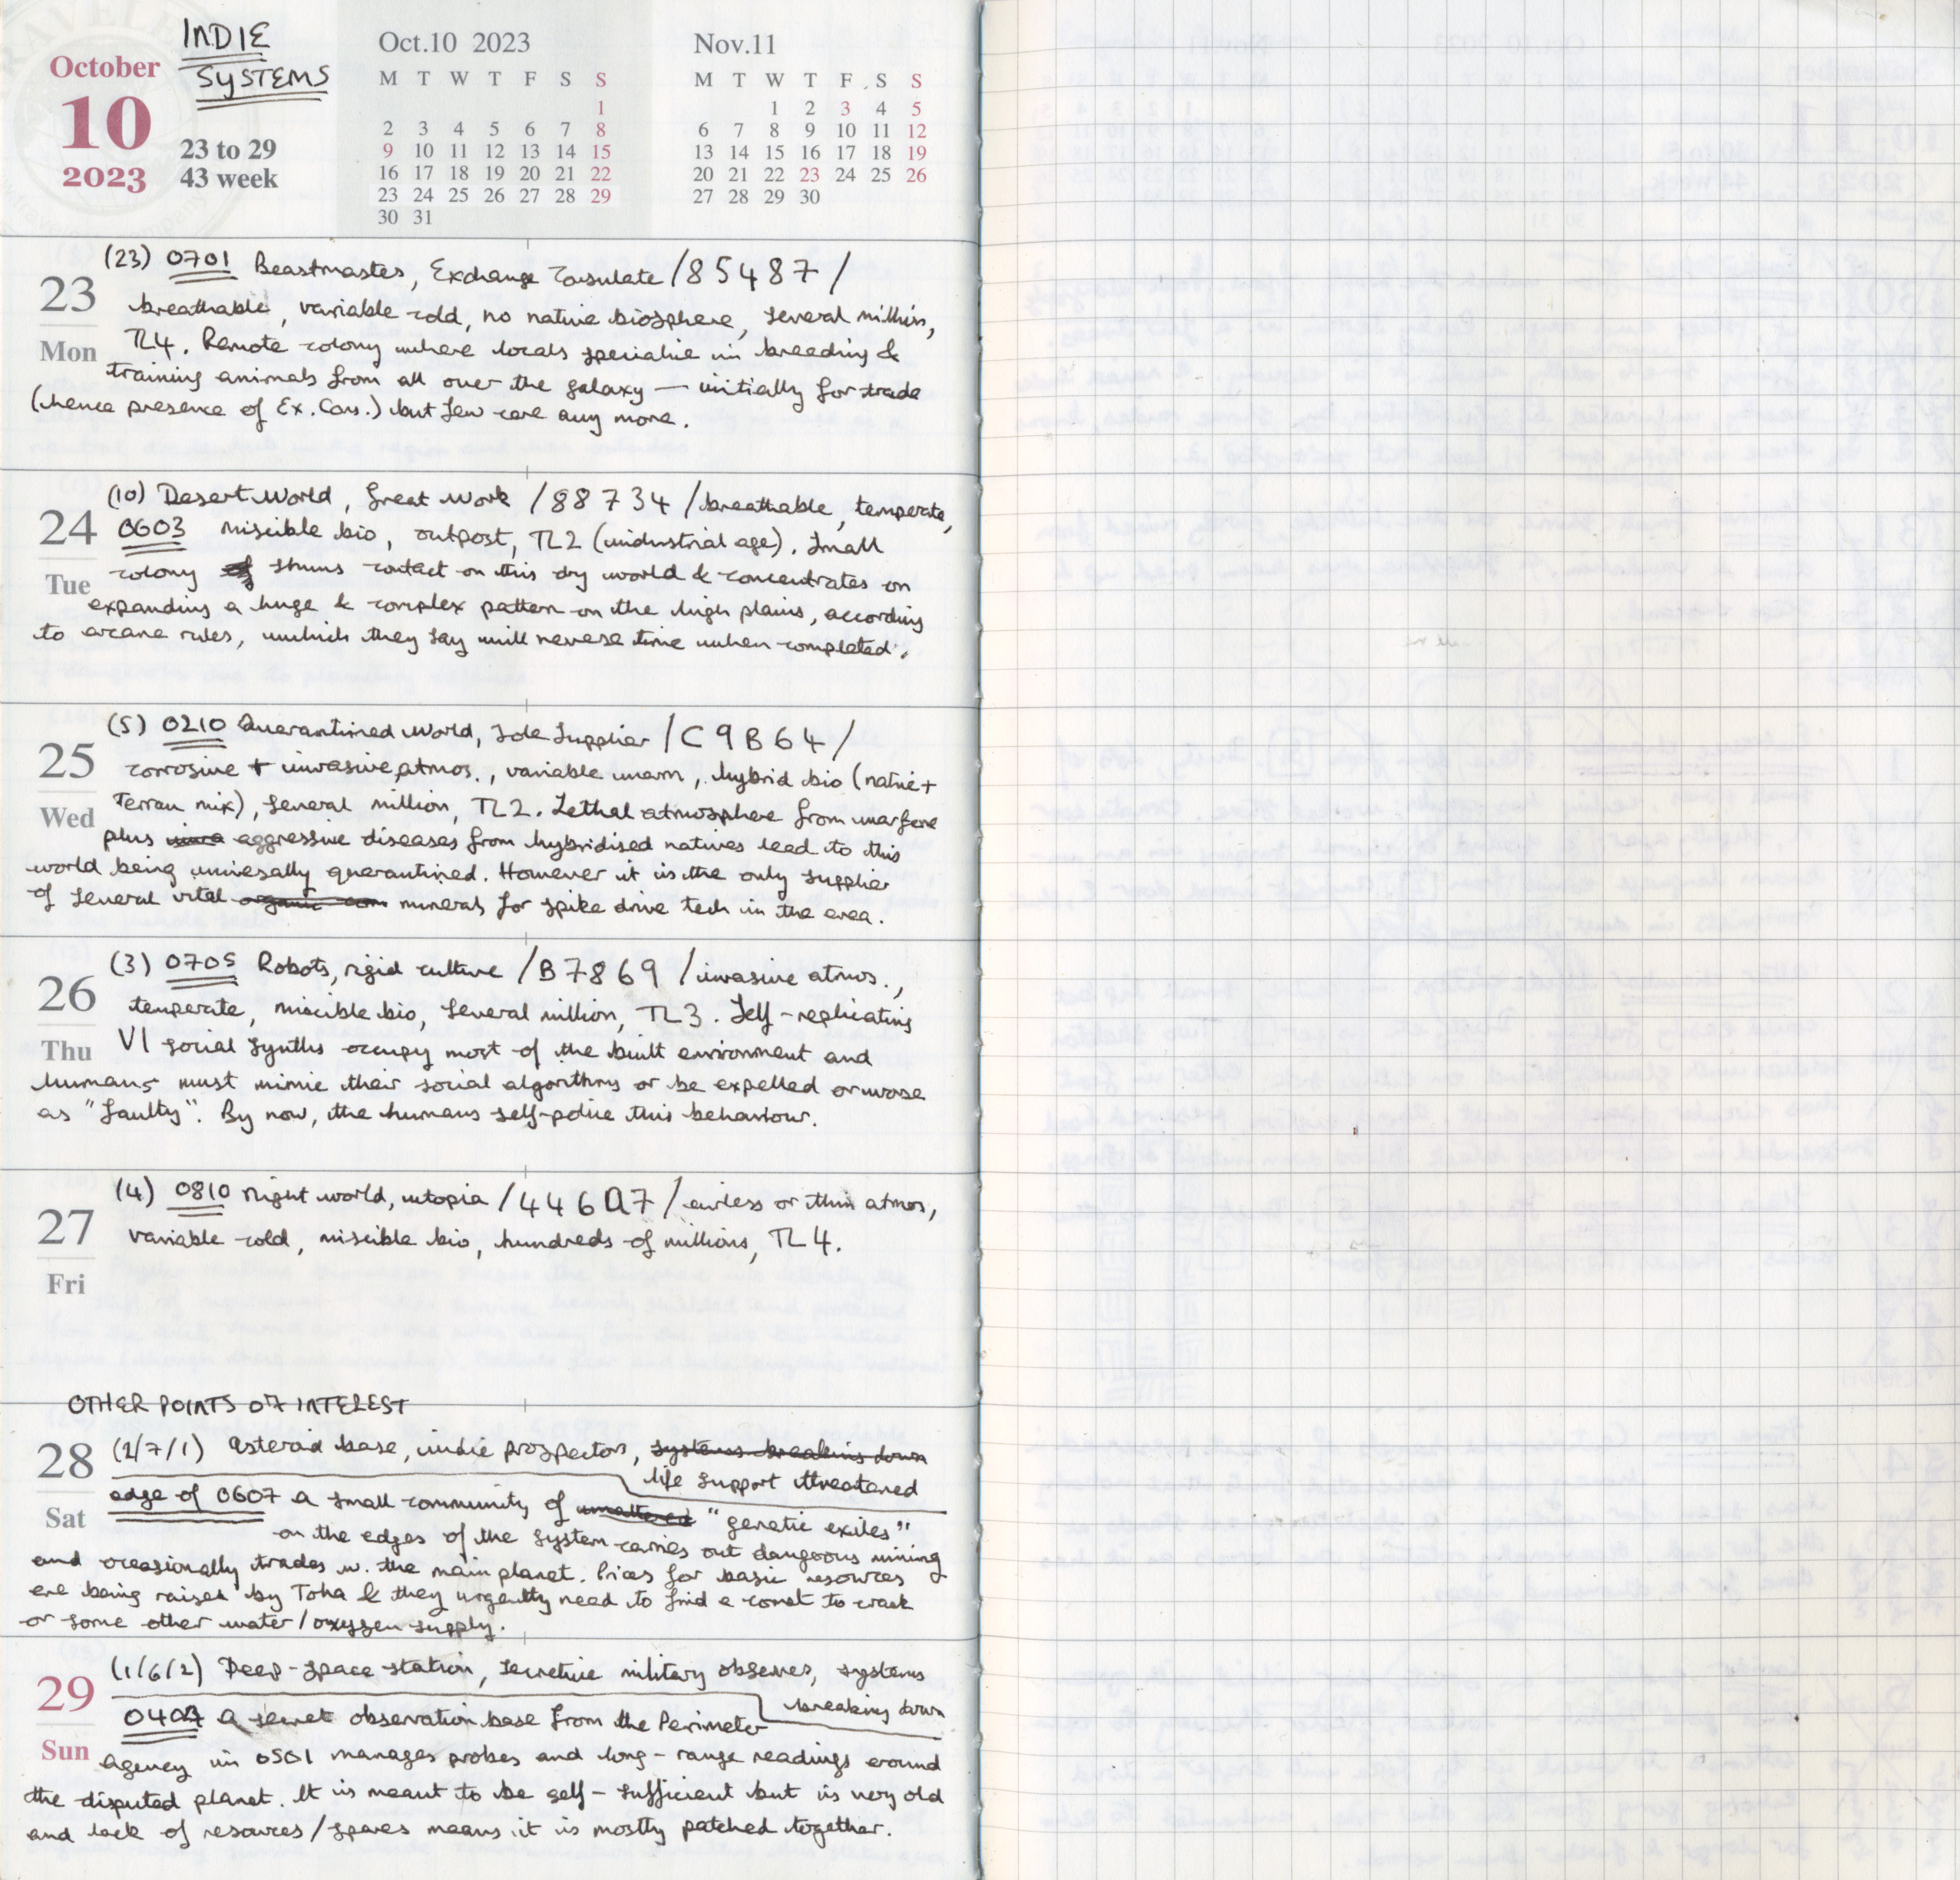 INDIE
SYSTEMS
October
10
2023
23 to 29
43 week
Oct.10 2023
M T W T F S S
1
2 3 4 5 6 7 8
9 10 11 12 13 14 15
16 17 18 19 20 21 22
23 24 25 26 27 28 29
30 31
Nov.11
M T W T F S S
1 2 3 4 5
6 7 8 9 10 11 12
13 14 15 16 17 18 19
20 21 22 23 24 25 26
27 28 29 30
23
Mon
(23) 0701 Beastmasters, Exchange Consulate /85487/
breathable, variable cold, no native biosphere, several million,
TL4. Remote colony where locals specialise in breeding &
training animals from all over the galaxy — initially for trade
(hence presence of Ex. Cons.) but few care any more.
24
Tue
(10) Desert World, Great Work /88734/ breathable, temperate,
0603 miscible bio, outpost, TL2 (industrial age). Small
colony of shuns contact on this dry world & concentrates on
expanding a huge & complex pattern on the high plains, according
to arcane rules, which they say will reverse time when completed.
25
Wed
(5) 0210 Quarantined World, Sole Supplier /C9B64/
corrosive + invasive atmos., variable warm, hybrid bio (native +
Terran mix), several million, TL2. Lethal atmosphere from warfare
plus aggressive diseases from hybridised natives lead to this
world being universally quarantined. However it is the only supplier
of several vital organic com minerals for spike drive tech in the area.
26
Thu
(3) 0705 Robots, rigid culture /B7869/ invasive atmos.,
temperate, miscible bio, several million, TL3. Self-replicating
VI social synths occupy most of the built environment and
humans must mimic their social algorithms or be expelled or worse
as "faulty". By now, the humans self-police this behaviour.
27
Fri
(4) 0810 Night world, utopia /446A7/ airless or thin atmos,
variable cold, miscible bio, hundreds of millions, TL4.
OTHER POINTS OF INTEREST
28
Sat
(2/7/1) Asteroid base, indie prospectors, systems breaking down
life support threatened
edge of 0607 A small community of "genetic exiles"
on the edges of the system carries out dangerous mining
and occasionally trades w. the main planet. Prices for basic resources
are being raised by Toha & they urgently need to find a comet to crack
or some other water/oxygen supply.
29
Sun
(1/6/2) Deep-space station, secretive military observers, systems
breaking down
A secret observation base from the Perimeter
Agency in 0501 manages probes and long-range readings around
the disputed planet. It is meant to be self-sufficient but is very old
and lack of resources/spares means it is mostly patched together.